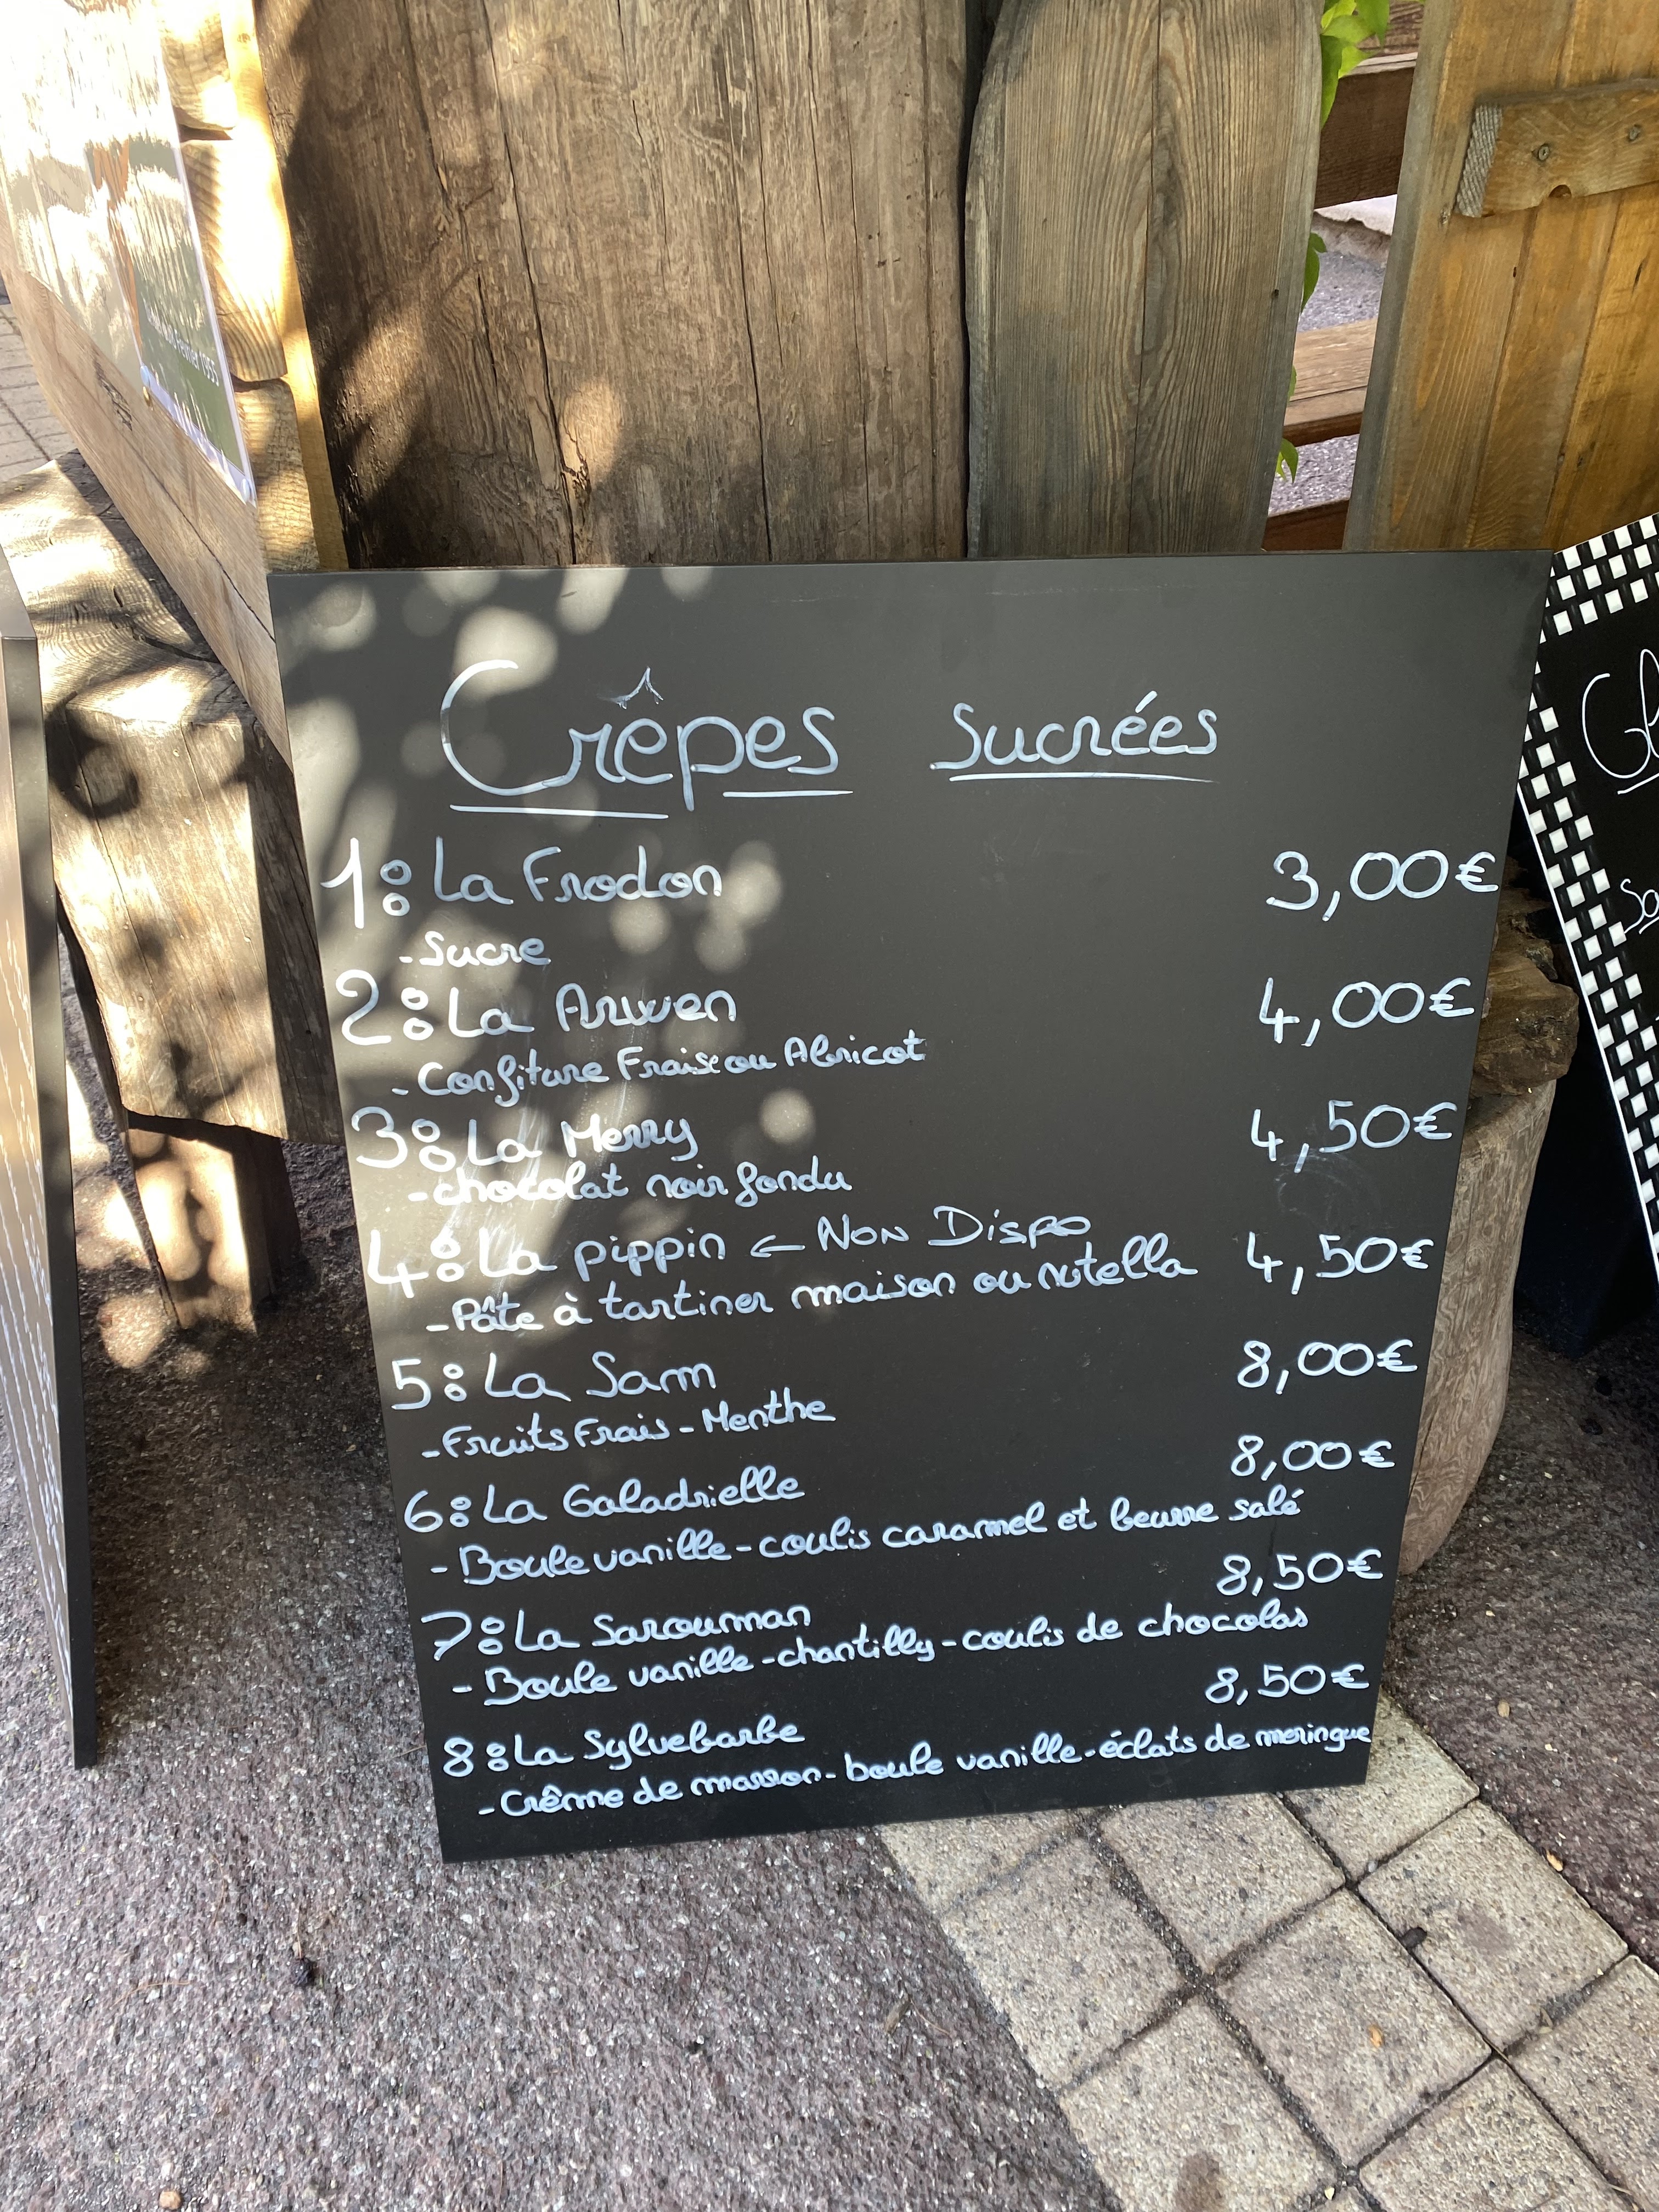 Crêpes sucrées
1: La Frodon 3,00€
- Sucre
2: La Arwen 4,00€
- Confiture Fraise ou Abricot
3: La Merry 4,50€
- chocolat noir fondu
4: La pippin ← Non Dispo 4,50€
- Pâte à tartiner maison ou nutella
5: La Sam 8,00€
- Fruits Frais - Menthe
6: La Galadrielle 8,00€
- Boule vanille - coulis caramel et beurre salé
7: La Sarouman 8,50€
- Boule vanille - chantilly - coulis de chocolas
8: La Sylvebarbe 8,50€
- Crême de marron - boule vanille - éclats de meringue